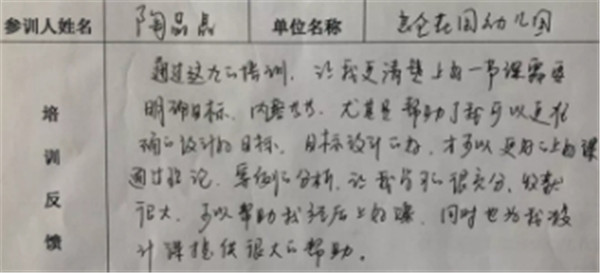 参训人姓名 陶晶晶 单位名称 花园幼儿园
培训反馈
通过这次的培训，让我更清楚上好一节课需要
明确目标、内容，尤其是帮助了我可以更准
确的设计好目标，目标设计好，才可以更好的上好课
通过理论、案例分析，让我学习很充分，收获
很大，可以帮助我今后上好课，同时也为我设
计课提供很大的帮助。